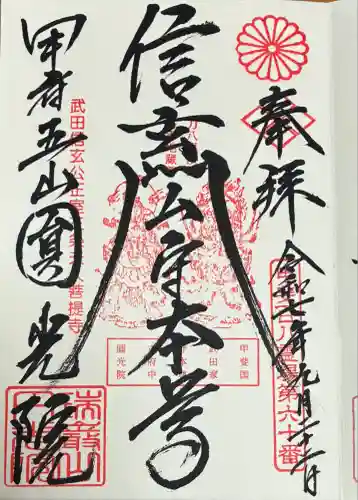 奉拝
令和七年元月
百八霊場第六十番
信玄公守本尊
甲斐国
武田家
府中
圓光院
甲府五山
圓光院
武田信玄公正室三条夫人菩提寺